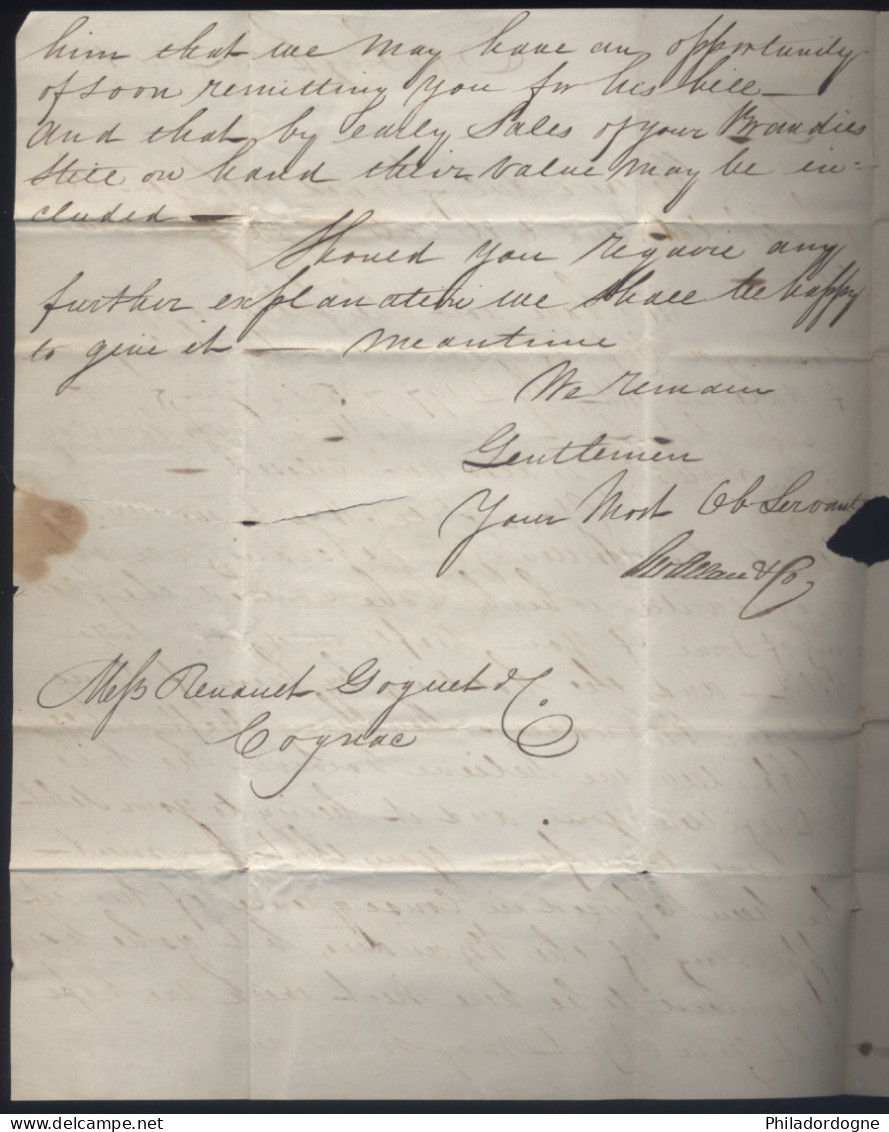 him that we may have an opportunity
of soon remitting you for his bill —
and that by early Sales of your Brandies
still on hand their value may be in=
cluded —
Should you require any
further explanation we shall be happy
to give it — meantime
We remain
Gentlemen
Your Most Ob Servant
Allan & Co
Mess Renault Goguet & Co
Cognac
Philadordogne